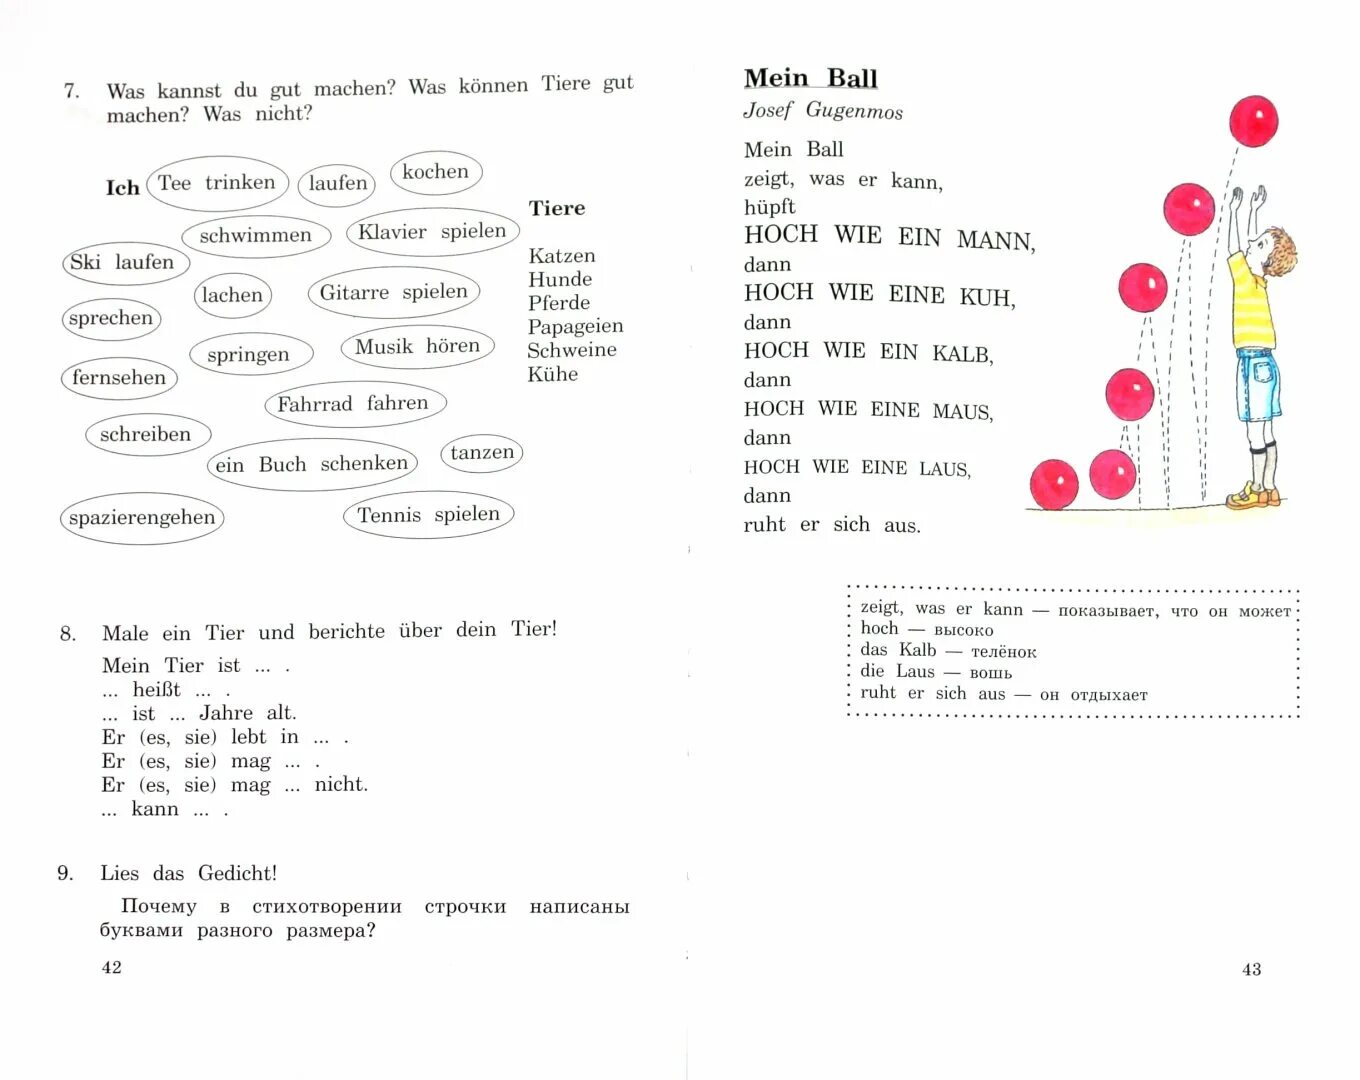 7. Was kannst du gut machen? Was können Tiere gut
machen? Was nicht?
Ich
Tee trinken
laufen
kochen
schwimmen
Klavier spielen
Ski laufen
lachen
Gitarre spielen
sprechen
springen
Musik hören
fernsehen
Fahrrad fahren
schreiben
ein Buch schenken
tanzen
spazierengehen
Tennis spielen
Tiere
Katzen
Hunde
Pferde
Papageien
Schweine
Kühe
8. Male ein Tier und berichte über dein Tier!
Mein Tier ist ... .
... heißt ... .
... ist ... Jahre alt.
Er (es, sie) lebt in ... .
Er (es, sie) mag ... .
Er (es, sie) mag ... nicht.
... kann ... .
9. Lies das Gedicht!
Почему в стихотворении строчки написаны
буквами разного размера?
42
Mein Ball
Josef Gugenmos
Mein Ball
zeigt, was er kann,
hüpft
HOCH WIE EIN MANN,
dann
HOCH WIE EINE KUH,
dann
HOCH WIE EIN KALB,
dann
HOCH WIE EINE MAUS,
dann
HOCH WIE EINE LAUS,
dann
ruht er sich aus.
zeigt, was er kann — показывает, что он может
hoch — высоко
das Kalb — телёнок
die Laus — вошь
ruht er sich aus — он отдыхает
43